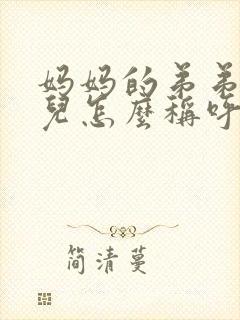 妈妈的弟弟
兒怎麼稱呼
简清蔓